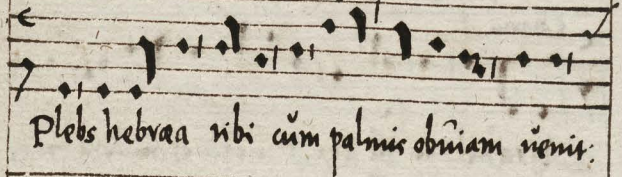 Plebs hebræa tibi cũm palmis obũiam ũenit: